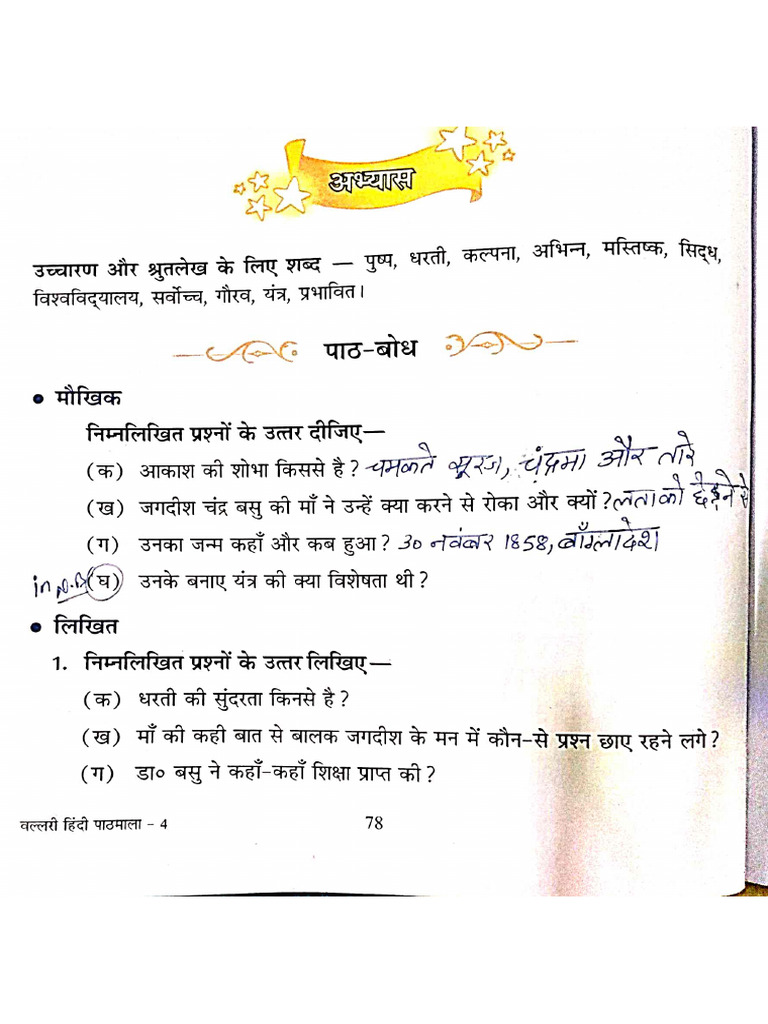 अभ्यास
उच्चारण और श्रुतलेख के लिए शब्द — पुष्प, धरती, कल्पना, अभिन्न, मस्तिष्क, सिद्ध,
विश्वविद्यालय, सर्वोच्च, गौरव, यंत्र, प्रभावित।
पाठ-बोध
• मौखिक
निम्नलिखित प्रश्नों के उत्तर दीजिए—
(क) आकाश की शोभा किससे है? चमकते सूरज, चंद्रमा और तारे
(ख) जगदीश चंद्र बसु की माँ ने उन्हें क्या करने से रोका और क्यों? लता को छेड़ने से
(ग) उनका जन्म कहाँ और कब हुआ? 30 नवंबर 1858, बाँग्लादेश
in N.B (घ) उनके बनाए यंत्र की क्या विशेषता थी?
• लिखित
1. निम्नलिखित प्रश्नों के उत्तर लिखिए—
(क) धरती की सुंदरता किनसे है?
(ख) माँ की कही बात से बालक जगदीश के मन में कौन-से प्रश्न छाए रहने लगे?
(ग) डा० बसु ने कहाँ-कहाँ शिक्षा प्राप्त की?
वल्लरी हिंदी पाठमाला - 4 78